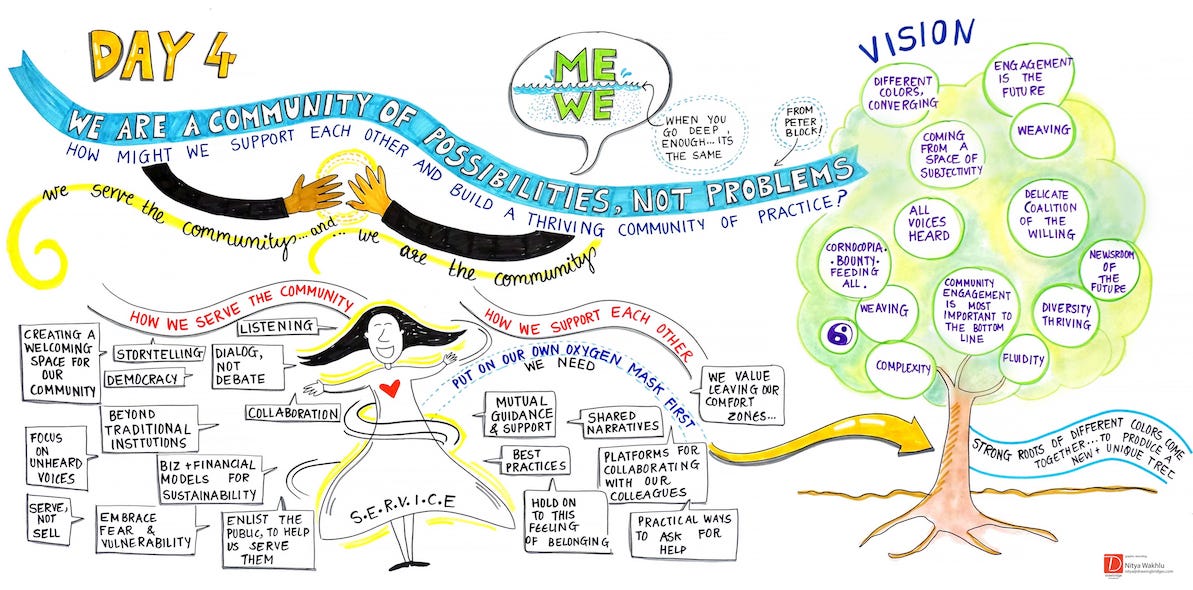 DAY 4
WE ARE A COMMUNITY OF POSSIBILITIES, NOT PROBLEMS
HOW MIGHT WE SUPPORT EACH OTHER AND BUILD A THRIVING COMMUNITY OF PRACTICE?
ME
WE
WHEN YOU
GO DEEP,
ENOUGH... ITS
THE SAME
FROM
PETER
BLOCK!
we serve the community... and
... we are the community
HOW WE SERVE THE COMMUNITY
CREATING A
WELCOMING
SPACE FOR
OUR
COMMUNITY
STORYTELLING
DEMOCRACY
LISTENING
DIALOG,
NOT
DEBATE
COLLABORATION
BEYOND
TRADITIONAL
INSTITUTIONS
FOCUS
ON
UNHEARD
VOICES
BIZ + FINANCIAL
MODELS FOR
SUSTAINABILITY
SERVE,
NOT
SELL
EMBRACE
FEAR &
VULNERABILITY
ENLIST THE
PUBLIC, TO HELP
US SERVE
THEM
S.E.R.V.I.C.E
HOW WE SUPPORT EACH OTHER
PUT ON OUR OWN OXYGEN MASK FIRST
WE NEED
MUTUAL
GUIDANCE
& SUPPORT
SHARED
NARRATIVES
WE VALUE
LEAVING OUR
COMFORT
ZONES...
BEST
PRACTICES
PLATFORMS FOR
COLLABORATING
WITH OUR
COLLEAGUES
HOLD ON
TO THIS
FEELING
OF BELONGING
PRACTICAL WAYS
TO ASK FOR
HELP
VISION
DIFFERENT
COLORS,
CONVERGING
ENGAGEMENT
IS THE
FUTURE
COMING
FROM A
SPACE OF
SUBJECTIVITY
WEAVING
ALL
VOICES
HEARD
DELICATE
COALITION
OF THE
WILLING
CORNOCOPIA.
.BOUNTY.
FEEDING
ALL.
NEWSROOM
OF THE
FUTURE
WEAVING
COMMUNITY
ENGAGEMENT
IS MOST
IMPORTANT TO
THE BOTTOM
LINE
DIVERSITY
THRIVING
COMPLEXITY
FLUIDITY
STRONG ROOTS OF DIFFERENT COLORS COME
TOGETHER... TO PRODUCE A
NEW + UNIQUE TREE
graphic recording
Nitya Wakhlu
nitya@drawingbridges.com